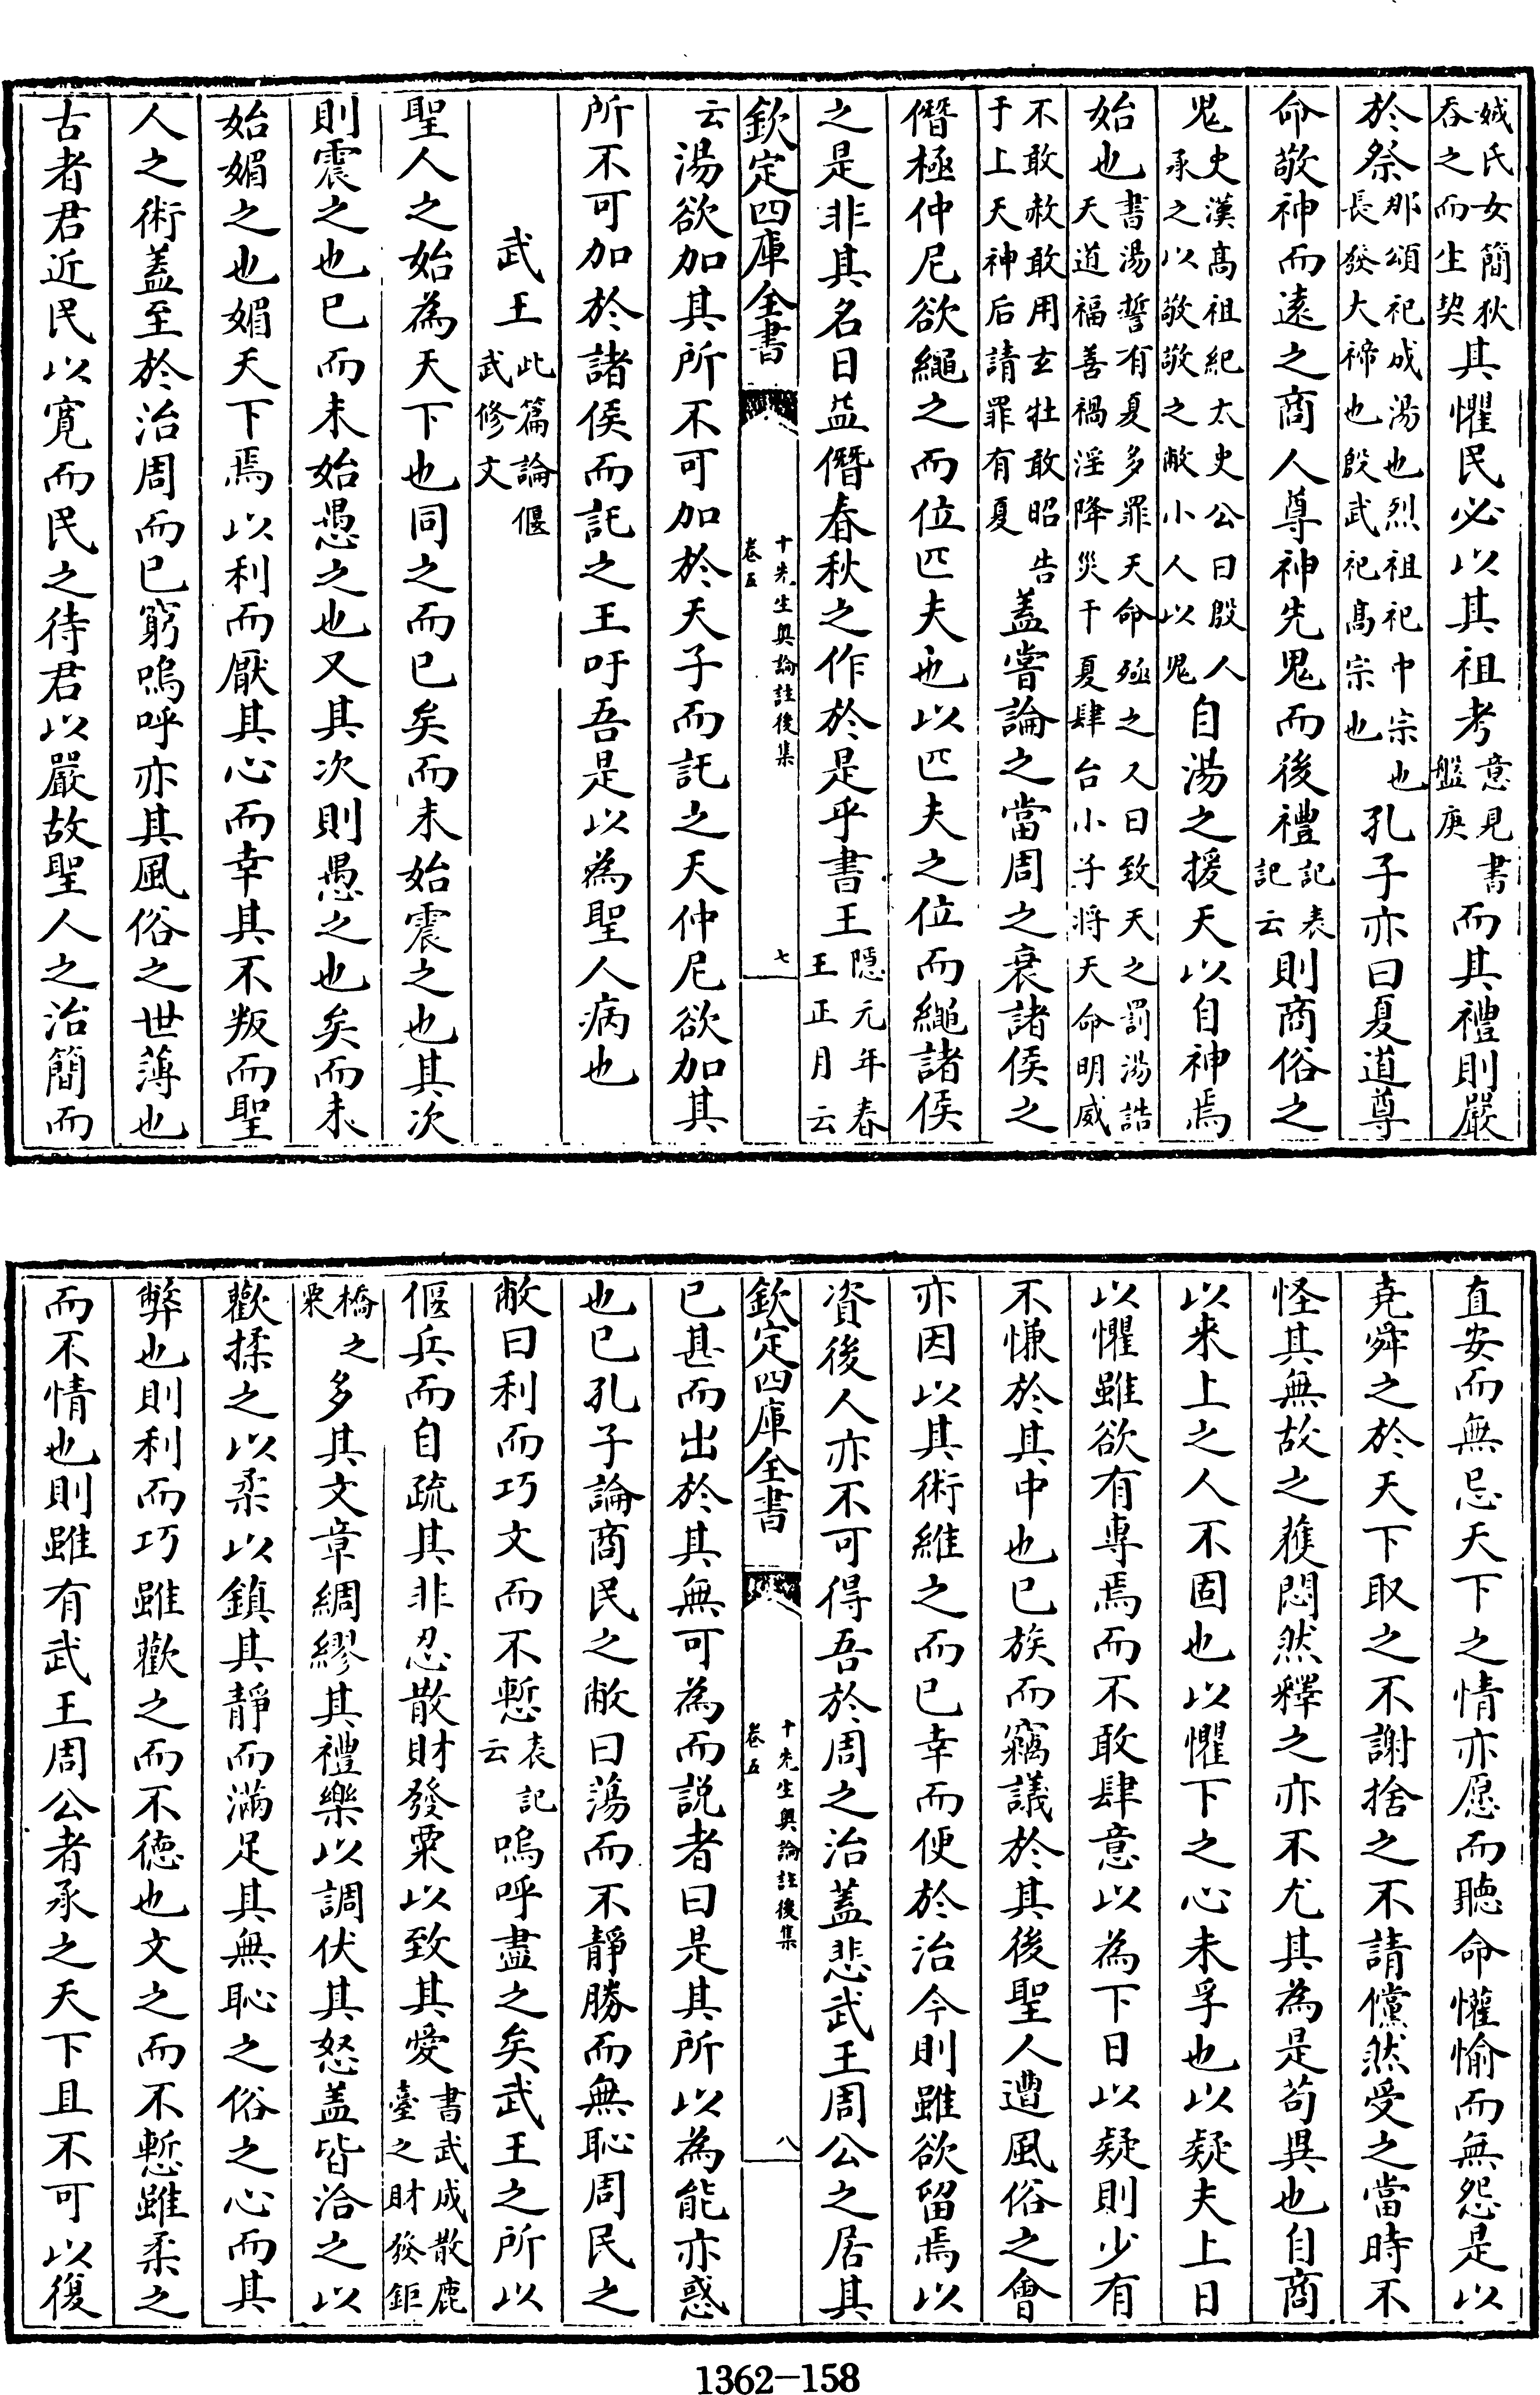 娀氏女簡狄吞之而生契其懼民必以其祖考意見書盤庚而其禮則嚴
於祭那頌祀成湯也烈祖祀中宗也長發大禘也殷武祀髙宗也孔子亦曰夏道尊
命敬神而逺之商人尊神先鬼而後禮記表記云則商俗之
鬼史漢髙祖紀太史公曰殷人承之以敬敬之敝小人以鬼自湯之援天以自神焉
始也書湯誓有夏多罪天命殛之又曰致天之罰湯誥天道福善禍淫降災于夏肆台小子将天命明威
不敢赦敢用玄牡敢昭告于上天神后請罪有夏蓋嘗論之當周之衰諸侯之
僭極仲尼欲繩之而位匹夫也以匹夫之位而繩諸侯
之是非其名日益僭春秋之作於是乎書王隱元年春王正月云
欽定四庫全書 十先生奥論註後集 卷五 七
云湯欲加其所不可加於天子而託之天仲尼欲加其
所不可加於諸侯而託之王吁吾是以為聖人病也
武王此篇論偃武修文
聖人之始為天下也同之而已矣而未始震之也其次
則震之也已而未始愚之也又其次則愚之也矣而未
始媚之也媚天下焉以利而厭其心而幸其不叛而聖
人之術蓋至於治周而已窮嗚呼亦其風俗之世薄也
古者君近民以寛而民之待君以嚴故聖人之治簡而
直安而無忌天下之情亦愿而聽命懽愉而無怨是以
堯舜之於天下取之不謝捨之不請儻然受之當時不
怪其無故之獲悶然釋之亦不尤其為是茍異也自商
以来上之人不固也以懼下之心未孚也以疑夫上日
以懼雖欲有専焉而不敢肆意以為下日以疑則少有
不慊於其中也已族而竊議於其後聖人遭風俗之會
亦因以其術維之而已幸而便於治今則雖欲留焉以
資後人亦不可得吾於周之治蓋悲武王周公之居其
欽定四庫全書 十先生奥論註後集 卷五 八
已甚而出於其無可為而説者曰是其所以為能亦惑
也已孔子論商民之敝曰蕩而不靜勝而無恥周民之
敝曰利而巧文而不慙表記云嗚呼盡之矣武王之所以
偃兵而自疏其非忍散財發粟以致其愛書武成散鹿臺之財發鉅
橋之粟多其文章綢繆其禮樂以調伏其怒盖皆洽之以
歡揉之以柔以鎮其靜而滿足其無恥之俗之心而其
弊也則利而巧雖歡之而不徳也文之而不慙雖柔之
而不情也則雖有武王周公者承之天下且不可以復
1362-158